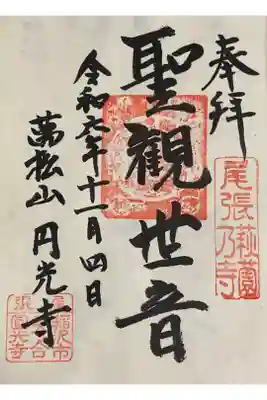 奉拝
聖觀世音
令和六年十一月四日
萬松山 円光寺
尾張萩薗乃寺